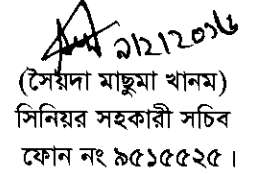 ৯/২/২০১৬
(সৈয়দা মাছুমা খানম)
সিনিয়র সহকারী সচিব
ফোন নং ৯৫১৫৫২৫।